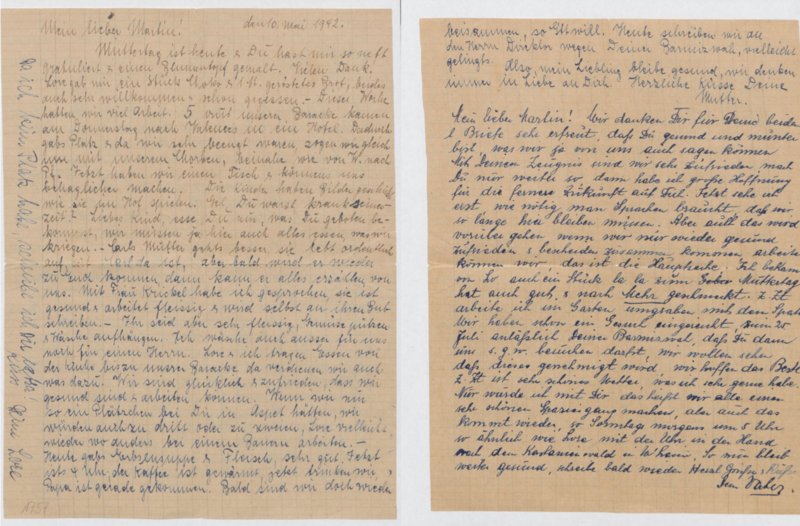 Mein lieber Martin! den 10. Mai 1942.
Muttertag ist heute & Du hast mir so nett
gratuliert & einen Blumentopf gemalt. Vielen Dank.
Lore gab mir ein Stück Choky & 1 St. geröstetes Brot, beides
auch sehr willkommen & schon gegessen. – Diese Woche
hatten wir viel Arbeit. 5 von unserer Baracke kamen
am Donnerstag nach in ein Hotel. Dadurch
gabs Platz & da wir sehr beengt waren, zogen wir gleich
um mit unserem, beinahe wie von W. nach
Jetzt haben wir einen Tisch & können uns
behaglicher machen. Die Kinder haben Bilder geschickt
wie sie im Hof spielen. Gel, Du warst krank seiner-
zeit? Liebes Kind, esse Du nur, was Du geboten be-
kommst, wir müssen ja hier auch alles essen, was wir
kriegen. – Carls Mutter gehts besser, sie lebt ordentlich
auf, seit da ist, aber bald wird er wieder
zu Euch kommen, dann kann er alles erzählen von
uns. Mit Frau Krückel habe ich gesprochen, sie ist
gesund & arbeitet fleissig & wird selbst an ihren
schreiben. – Ihr seid aber sehr fleissig, Gemüse putzen,
& Wäsche aufhängen. Ich wasche auch ausser für uns
noch für einen Herrn. Lore & ich tragen Essen von
der Küche bis zu unserer Baracke da verdienen wir auch
was dazu. Wir sind glücklich & zufrieden, dass wir
gesund sind & arbeiten können. Wenn wir nur
so ein Plätzchen bei Dir in Aspet hätten, wir
würden auch zu dritt oder zu zweien, Lore vielleicht
wieder wo anders bei einem Bauern arbeiten. –
Heute gabs & Fleisch, sehr gut. Jetzt
ists 4 Uhr, der Kaffee ist gewärmt, jetzt trinken wir &
Papa ist gerade gekommen. Bald sind wir doch wieder
Da ich kein Platz habe schreibe ich die letzte
Deine Lore
1759
beisammen, so Gott will. Heute schreiben wir an
den Herrn Direktor wegen Deiner Barmizwah, vielleicht
gelingts. Also, mein Liebling bleibe gesund, wir denken
immer in Liebe an Dich. Herzliche Küsse Deine
Mutter.
Mein lieber Martin! Wir danken Dir für Deine beiden
l. Briefe sehr erfreut, daß Du gesund und munter
bist, was wir ja von uns auch sagen können
Mit Deinem Zeugnis sind wir sehr zufrieden mach
Du nur weiter so, dann habe ich große Hoffnung
für die fernere Zukunft auf Dich. Jetzt sehe ich
erst wie nötig man Sprachen braucht, daß wir
so lange hier bleiben müssen. Aber auch das wird
vorüber gehen wenn wir nur wieder gesund
zufrieden & beisammen kommen arbeiten
können wir das ist die Hauptsache. Ich bekam
von Lo auch ein Stück zum Muttertag
hat auch gut & nach Mehr geschmeckt. z. Zt.
arbeite ich im Garten umgraben mit dem Spaten
Wir haben schon ein Gesuch eingereicht, zum 25
Juli anläßlich Deine Barmizwah, daß Du dann
uns s. G. w. besuchen darfst, wir wollen sehen
daß dieses genehmigt wird, wir hoffen das Beste
z. Zt ist sehr schönes Wetter, was ich sehr gerne habe.
Nur würde ich mit Dir das heißt wir alle einen
sehr schönen Spaziergang machen, aber auch das
kommt wieder, so Sonntags morgens um 5 Uhr
so ähnlich wie mit der Uhr in der Hand
nach dem Kastanienwald in. So nun bleib
weiter gesund, schreibe bald wieder Herzl. Grüße & Küße
Dein Vater.